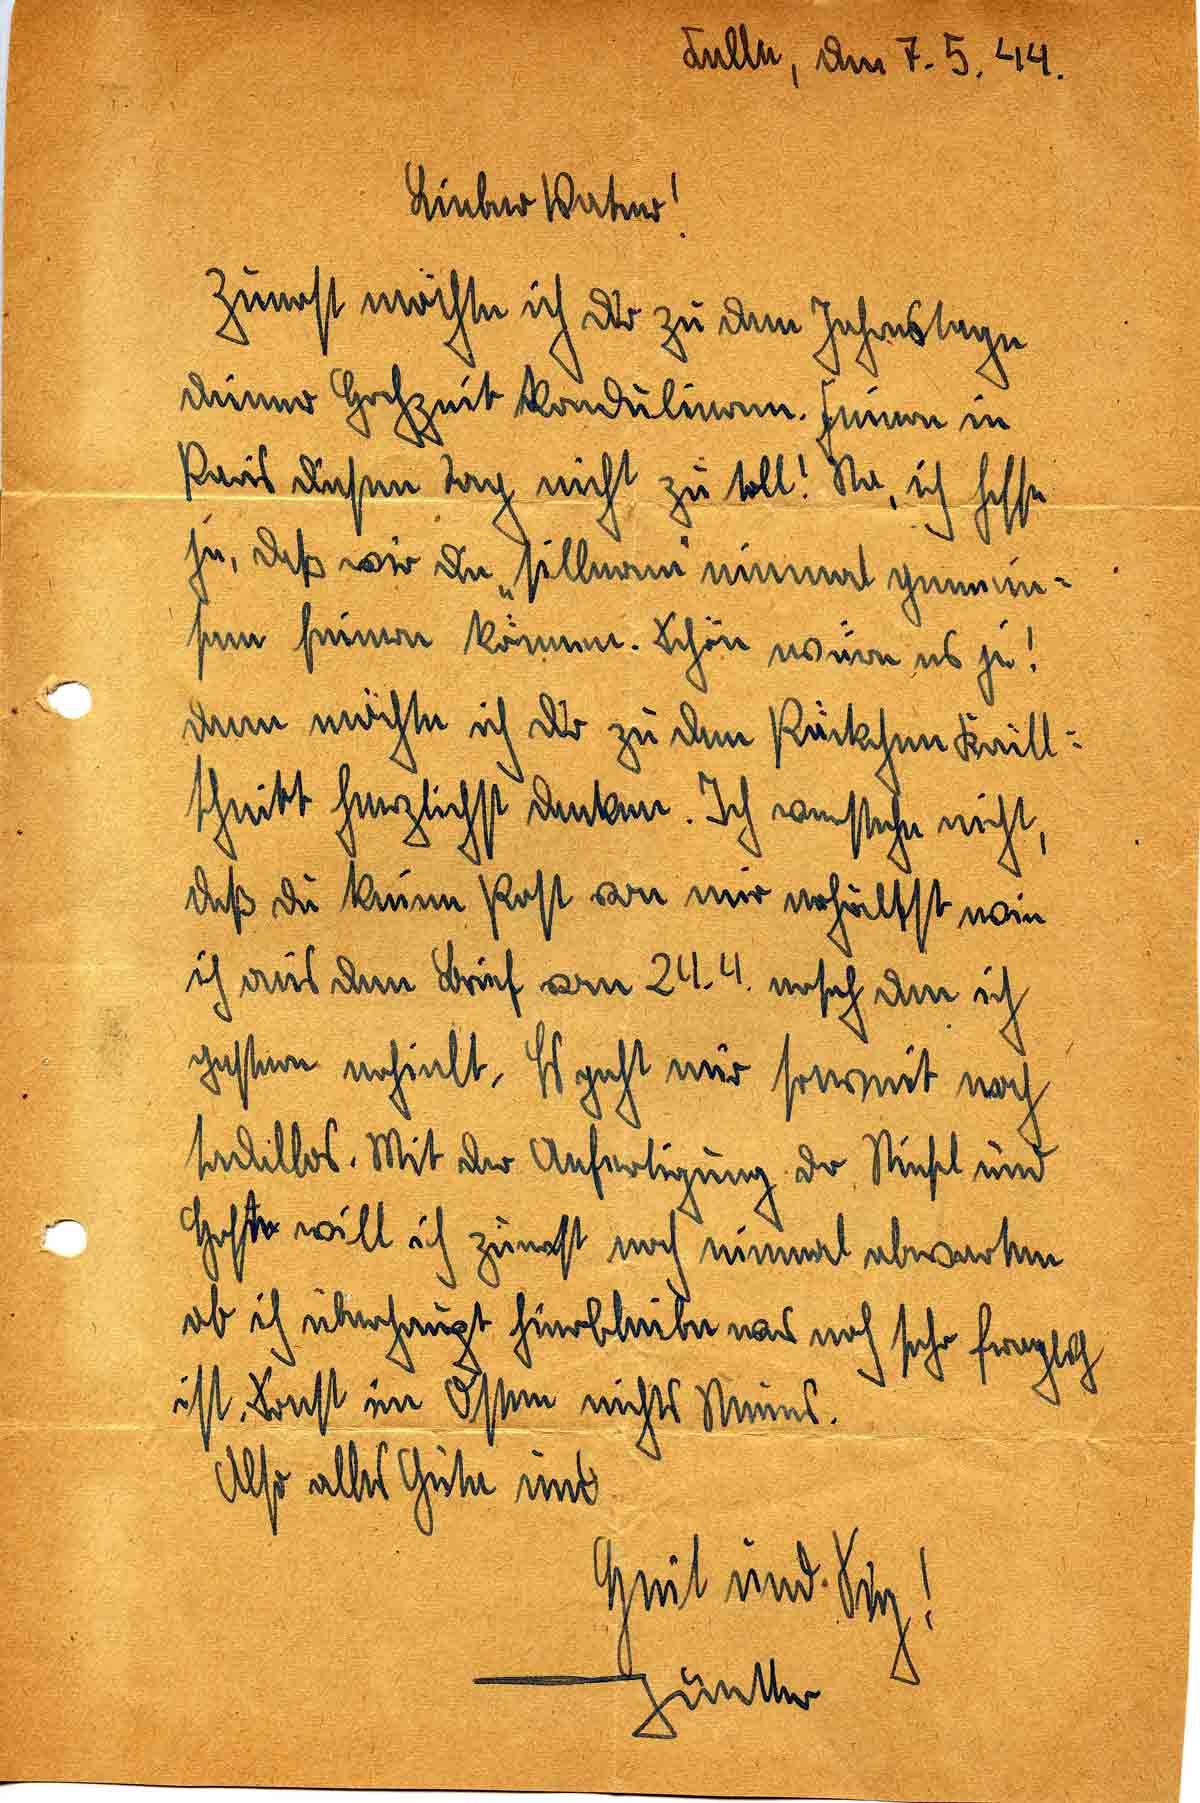 Tulln, den 7.5.44.
Lieber Vater!
Zuerst möchte ich dir zu dem Jahrestage
deiner Hochzeit kondulieren. Feiere in
Paris diesen Tag nicht zu toll! Na, ich hoffe
ja, daß wir die „silberne" einmal gemein=
sam feiern können. Schön wäre es ja!
dann möchte ich dir zu dem Päckchen
schnitt herzlichst danken. Ich verstehe nicht,
daß du keine Post von mir erhältst wie
ich aus dem Brief vom 24.4. ersah den ich
gestern erhielt. Es geht mir soweit noch
tadellos. Mit der Anfertigung der Stiefel und
Hose will ich zuerst noch einmal abwarten
ob ich überhaupt hierbleibe was noch sehr fraglich
ist. Sonst im Osten nichts Neues.
Also alles Gute und
Heil und Sieg!
Günther